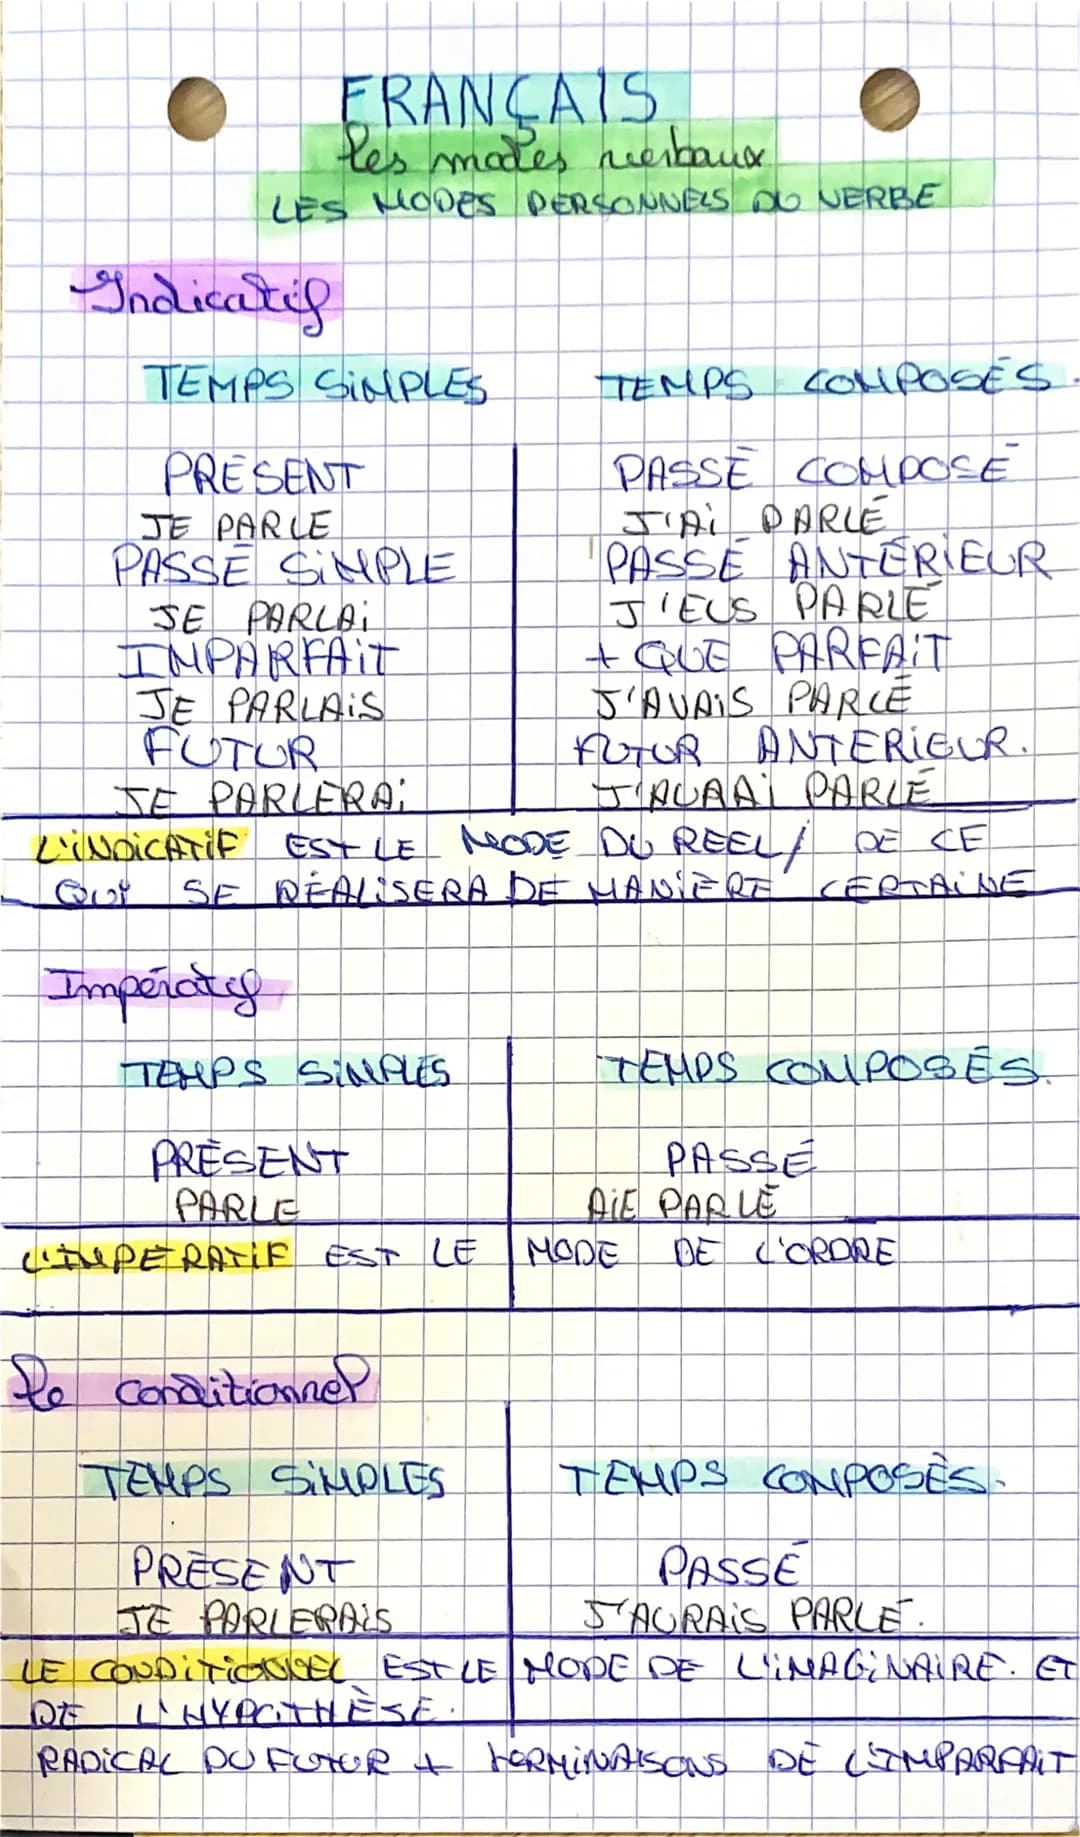 FRANÇAIS
les modes verbaux
LES MODES PERSONNELS DU VERBE
Indicatif
TEMPS SIMPLES
TEMPS COMPOSÉS.
PRÉSENT
PASSÉ COMPOSÉ
JE PARLE
J'AI PARLÉ
PASSÉ SIMPLE
PASSÉ ANTÉRIEUR
JE PARLAI
J'EUS PARLÉ
IMPARFAIT
+ QUE PARFAIT
JE PARLAIS
J'AVAIS PARLÉ
FUTUR
FUTUR ANTERIEUR.
JE PARLERAI
J'AURAI PARLÉ
L'INDICATIF EST LE MODE DU REEL / DE CE
QUI SE RÉALISERA DE MANIÈRE CERTAINE
Impératif
TEMPS SIMPLES
TEMPS COMPOSÉS.
PRÉSENT
PASSÉ
PARLE
AIE PARLÉ
L'IMPERATIF EST LE MODE DE L'ORDRE
Le conditionnel
TEMPS SIMPLES
TEMPS COMPOSÉS.
PRÉSENT
PASSÉ
JE PARLERAIS
J'AURAIS PARLÉ.
LE CONDITIONNEL EST LE MODE DE L'IMAGINAIRE. ET
DE L'HYPOTHÈSE.
RADICAL DU FUTUR + TERMINAISONS DE L'IMPARFAIT